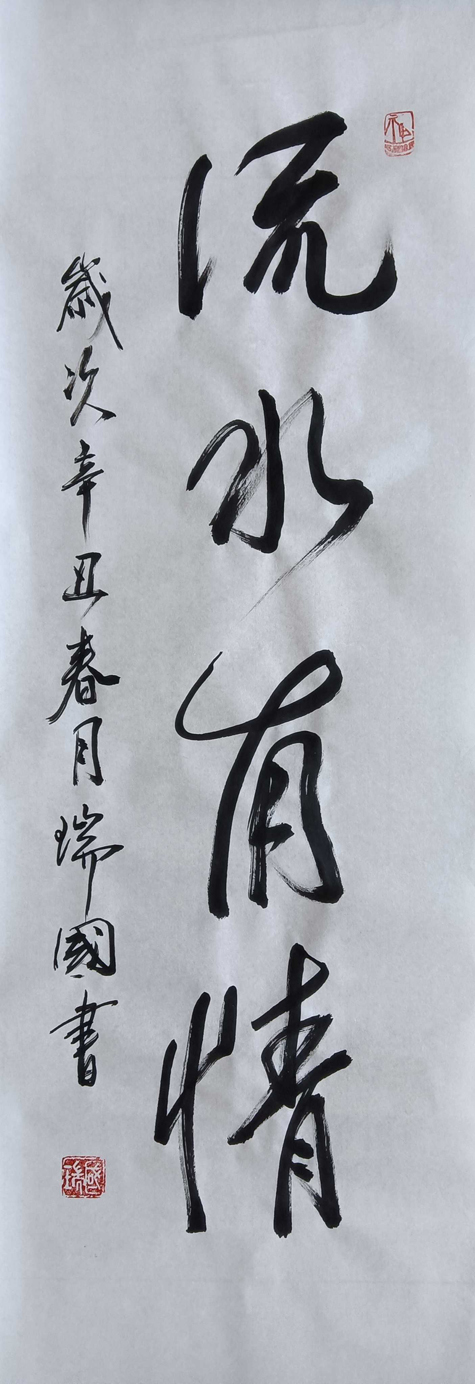 流水有情
歲次辛丑春月瑞國書